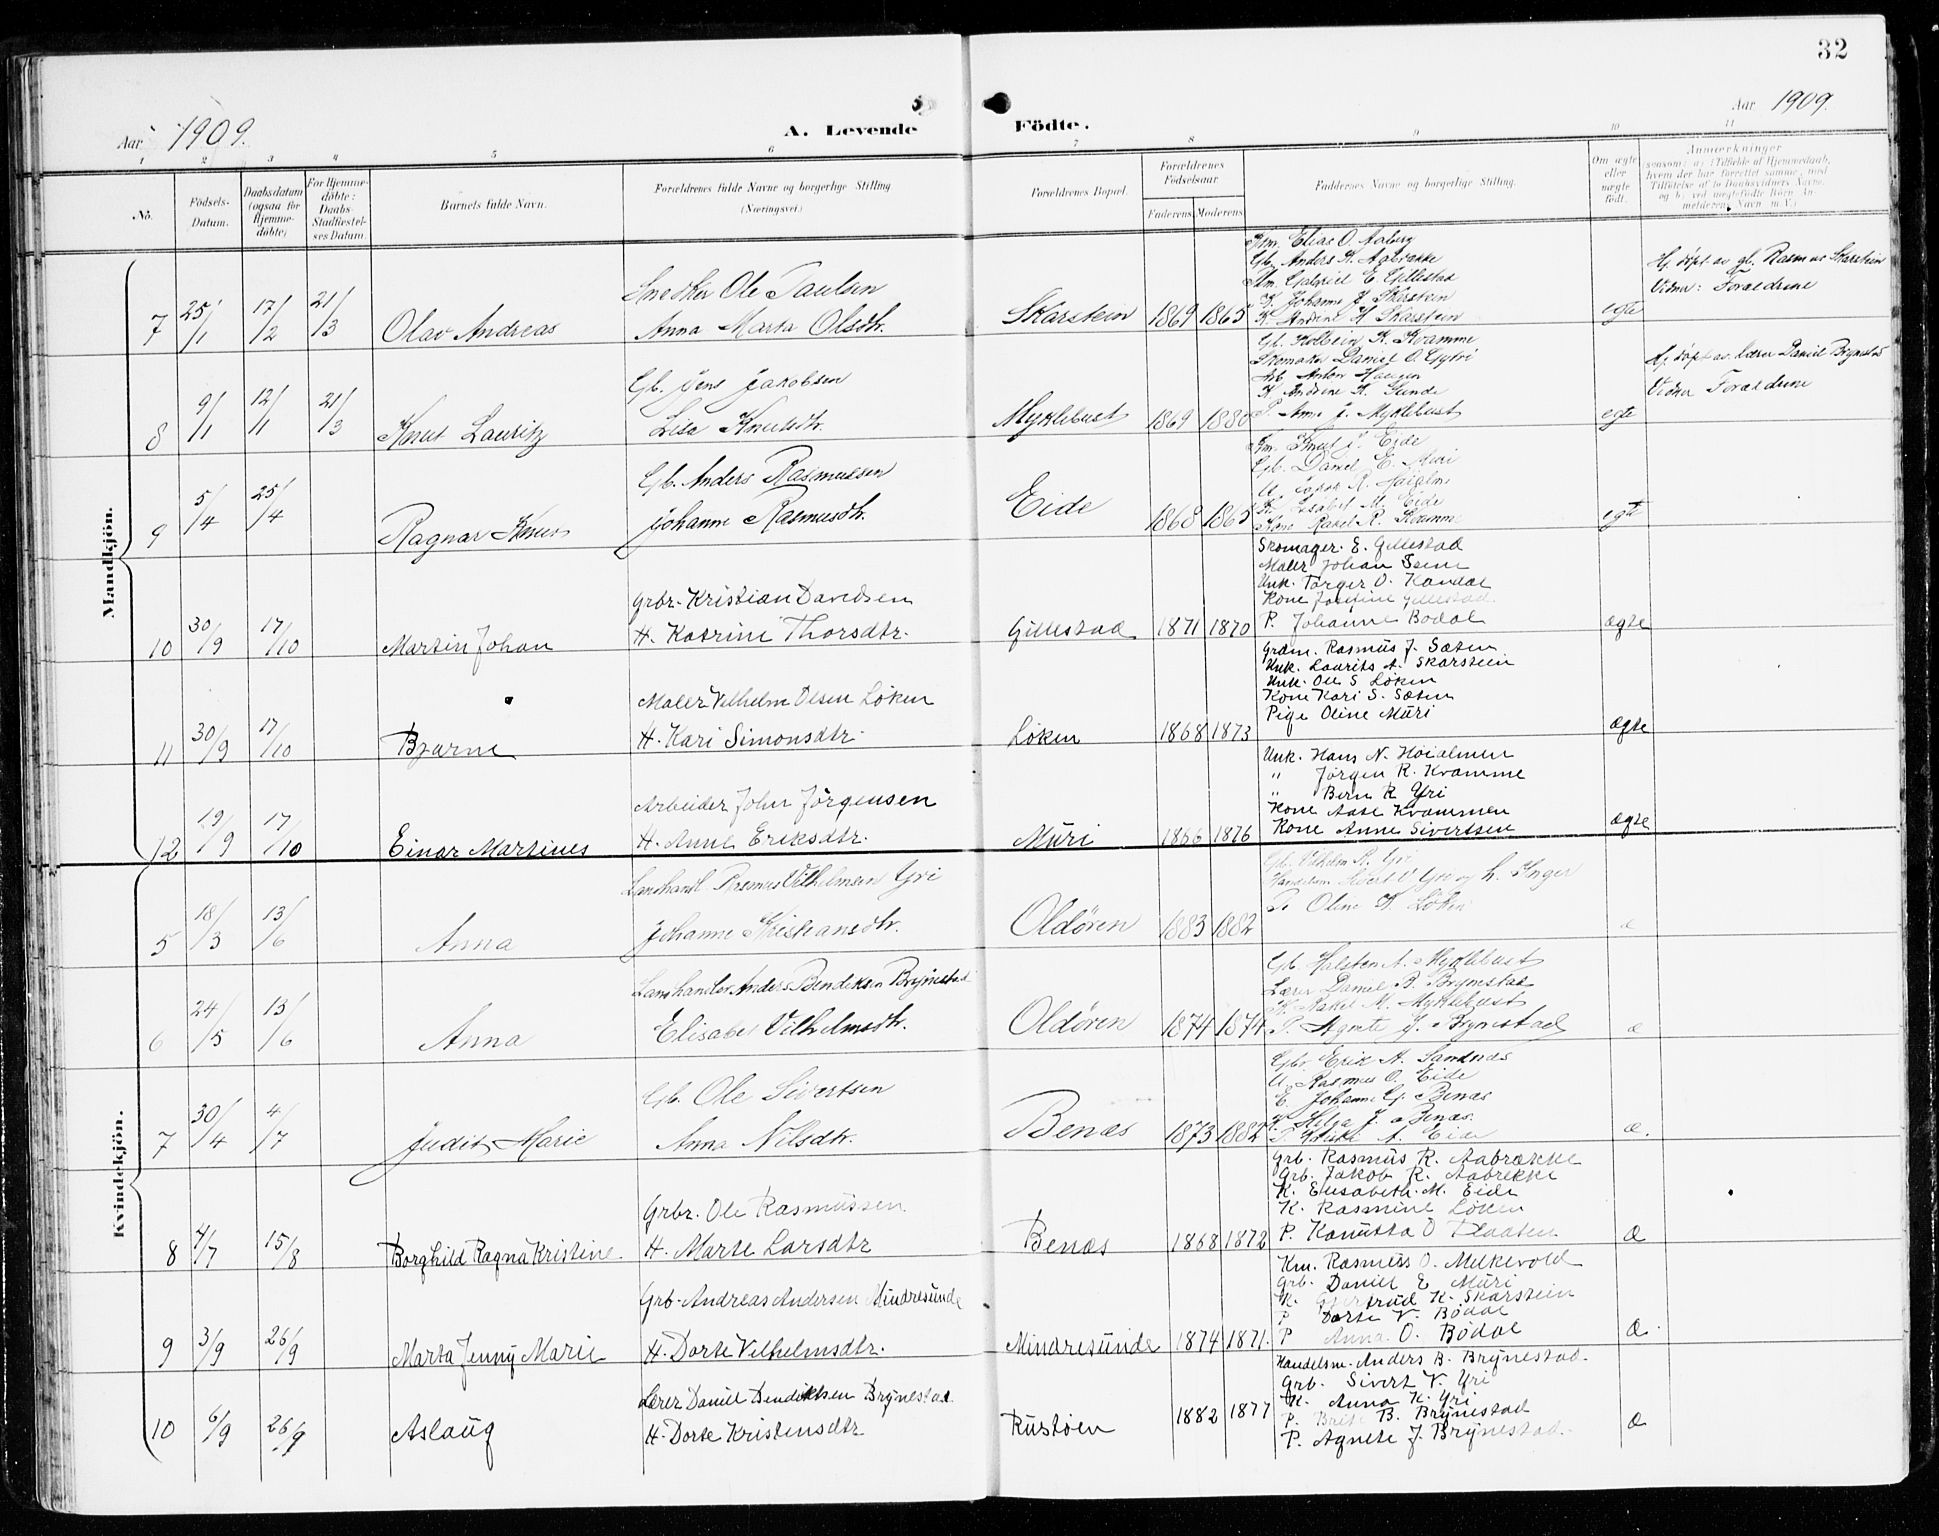 32
Aar 1909. A. Levende Födte. Aar 1909.
1 2 3 4 5 6 7 8 9 10 11
No. Födsels-Datum. Daabsdatum (ogsaa for Hjemmedöbte) For Hjemmedöbte: Daabs-Stadfæstelses Datum. Barnets fulde Navn. Forældrenes fulde Navne og borgerlige Stilling (Næringsvei.) Forældrenes Bopæl. Forældrenes Födselsaar Faderens Moderens Faddernes Navne og borgerlige Stilling. Om ægte eller uægte født. Anmærkninger
Mandkjön.
7 25/1 17/2 21/3 Olav Andreas
Snedker Ole Paulsen
Anna Marta Olsdtr.
Skarstein 1869 1865
Km. Elias O. Aaberg
Gb. Anders K. Aabrække
Km. Gabriel E. Gillestad
K. Johanne J. Skarstein
K. Andrine K. Skarstein
egte
Hj. døpt av gb. Rasmus Skarstein
Vidner: Foraldrene
8 9/1 12/1 21/3 Knut Lauritz
Gb. Jens Jakobsen
Lisa Knutsdtr.
Myklebust 1869 1880
Gb. Kolbein K. Kvamme
Skomaker Daniel O.
Arb. Anton
K. Andrine K. Sunde
P. Anne J. Myklebust
egte
Hj. døpt av Lærer Daniel Brynestad
Vidner Foraldrene
9 5/4 25/4 Ragnar Knut
Gb. Anders Rasmussen
Johanne Rasmusdtr.
Eide 1868 1865
Km. Knut J. Eide
Gb. Daniel E. Muri
K. Lisabet M. Eide
Kone Rakel R. Kvamme
egte
10 30/9 17/10 Martin Johan
Grbr. Kristian Davidsen
H. Katrine Thorsdtr.
Gillestad 1871 1870
Skomager E. Gillestad
Maler Johan
Unk. Torger O. Kandal
Kone Josefine Gillestad
P. Johanne Bødal
ægte
11 30/9 17/10 Bjarne
Maler Vilhelm Olsen Løken
H. Kari Simonsdtr.
Løken 1868 1873
Grdm. Rasmus J. Sæten
Unk. Laurits A. Skarstein
Unk. Ole S. Løken
Kone Kari S. Sæten
Pige Oline Muri
ægte
12 19/9 17/10 Einar Martinus
Arbeider John Jørgensen
H. Anne Eriksdtr.
Muri 1866 1876
Unk. Hans N. Høialmen
" Jørgen R. Kvamme
" Bern R. Yri
Kone Aase Kvammen
Kone Anne Sivertsen
ægte
Kvindekjön.
5 18/3 13/6 Anna
Landhandl. Rasmus Vilhelmsen Yri
Johanne Kristiansdtr.
Oldøren 1883 1882
Gb. Vilhelm R. Yri
Handelsm. Sivert V. Yri og h. Inger
P. Oline K. Løken
æ
6 24/5 13/6 Anna
Landhandler Anders Bendiksen Brynestad
Elisabet Vilhelmsdtr.
Oldøren 1874 1874
Gb. Halsten A. Myklebust
Lærer Daniel B. Brynestad
K. Rakel M. Myklebust
P. Agnete J. Brynestad
æ
7 30/4 4/7 Judit Marie
Gb. Ole Sivertsen
Anna Nilsdtr.
Benæs 1873 1882
Gbr. Erik A. Sandnæs
U. Rasmus O. Eide
E. Johanne G. Benæs
K. Helga J. Benæs
P. A. Eide
æ.
8 4/7 15/8 Borghild Ragna Kristine
Grbr. Ole Rasmussen.
H. Marte Larsdtr
Benæs 1868 1872
Grb. Rasmus R. Aabrække
Grb. Jakob R. Aabrekke
K. Elisabeth M. Eide
K. Rasmine Løken
P. Kanutta O Flaaten
æ
9 3/9 26/9 Marta Jenny Marie
Grb. Andreas Andersen Mindresunde
H. Dorte Vilhelmsdtr.
Mindresunde 1874 1871.
Km. Rasmus O. Melkevold
Grb. Daniel E Muri
K. Gjertrud K. Skarstein
P Dorte V. Bødal
P Anna O. Bødal
æ.
10 6/9 26/9 Aslaug
Lærer Daniel Bendiktsen Brynestad.
H. Dorte Kristensdtr
Rustøen 1882 1877
Handelsm. Anders B. Brynestad.
Grb. Sivert V. Yri
K. Anna K. Yri
P. Brite B. Brynestad
P. Agnete J. Brynestad.
æ